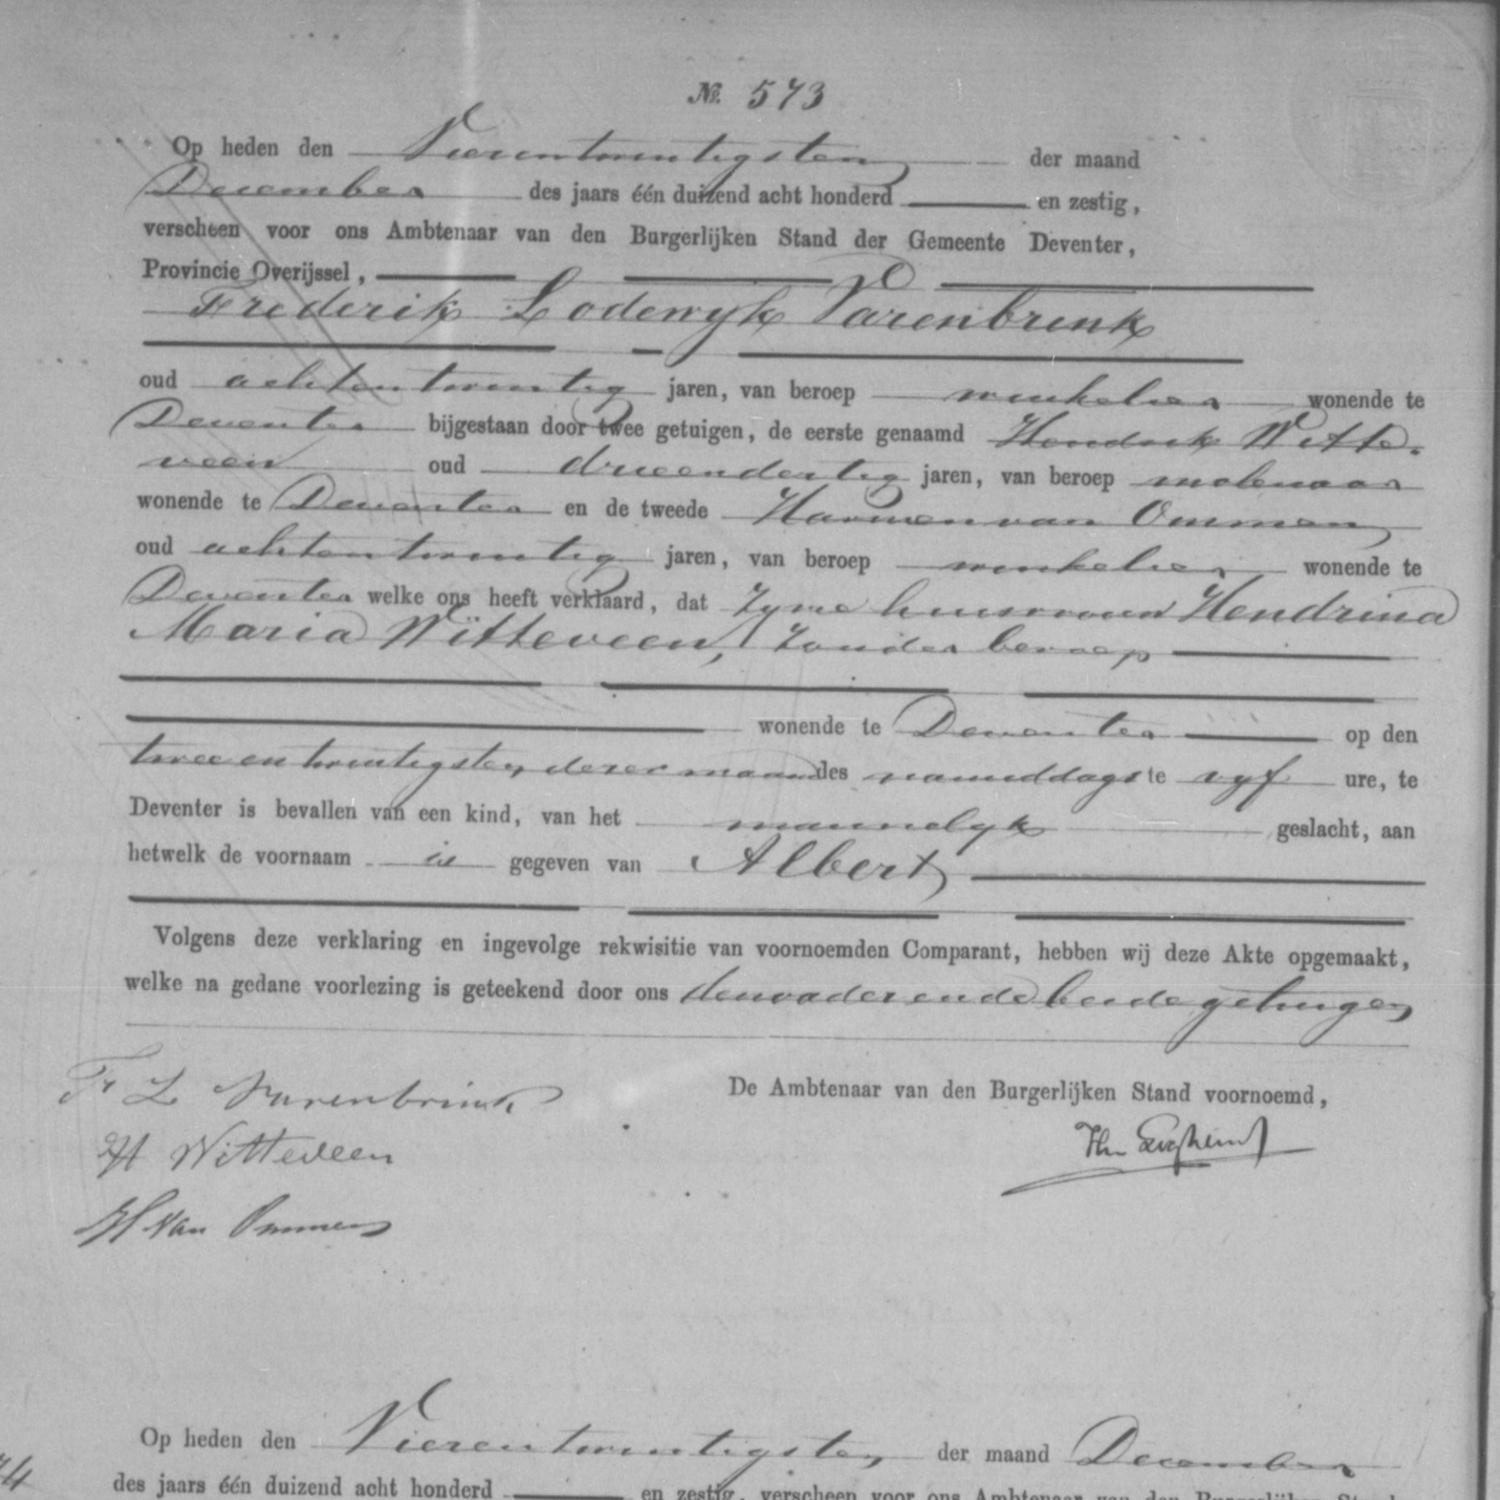 №. 573
Op heden den Vierentwintigsten der maand
December des jaars één duizend acht honderd en zestig,
verscheen voor ons Ambtenaar van den Burgerlijken Stand der Gemeente Deventer,
Provincie Overijssel,
Frederik Lodewyk Varenbrink
oud achtentwintig jaren, van beroep winkelier wonende te
Deventer bijgestaan door twee getuigen, de eerste genaamd Hendrik Witte-
veen oud drieendertig jaren, van beroep molenaar
wonende te Deventer en de tweede Harmen van Ommen
oud achtentwintig jaren, van beroep winkelier wonende te
Deventer welke ons heeft verklaard, dat zyne huisvrouw Hendrina
Maria Witteveen, zonder beroep
wonende te Deventer op den
twee en twintigsten dezer maand des namiddags te vyf ure, te
Deventer is bevallen van een kind, van het mannelyk geslacht, aan
hetwelk de voornaam is gegeven van Albert
Volgens deze verklaring en ingevolge rekwisitie van voornoemden Comparant, hebben wij deze Akte opgemaakt,
welke na gedane voorlezing is geteekend door ons den vader en de beide getuigen
F L Varenbrink
De Ambtenaar van den Burgerlijken Stand voornoemd,
H Witteveen
H van Ommen
Op heden den Vierentwintigsten der maand December
des jaars één duizend acht honderd en zestig, verscheen voor ons Ambtenaar van den Burgerlijken Stand